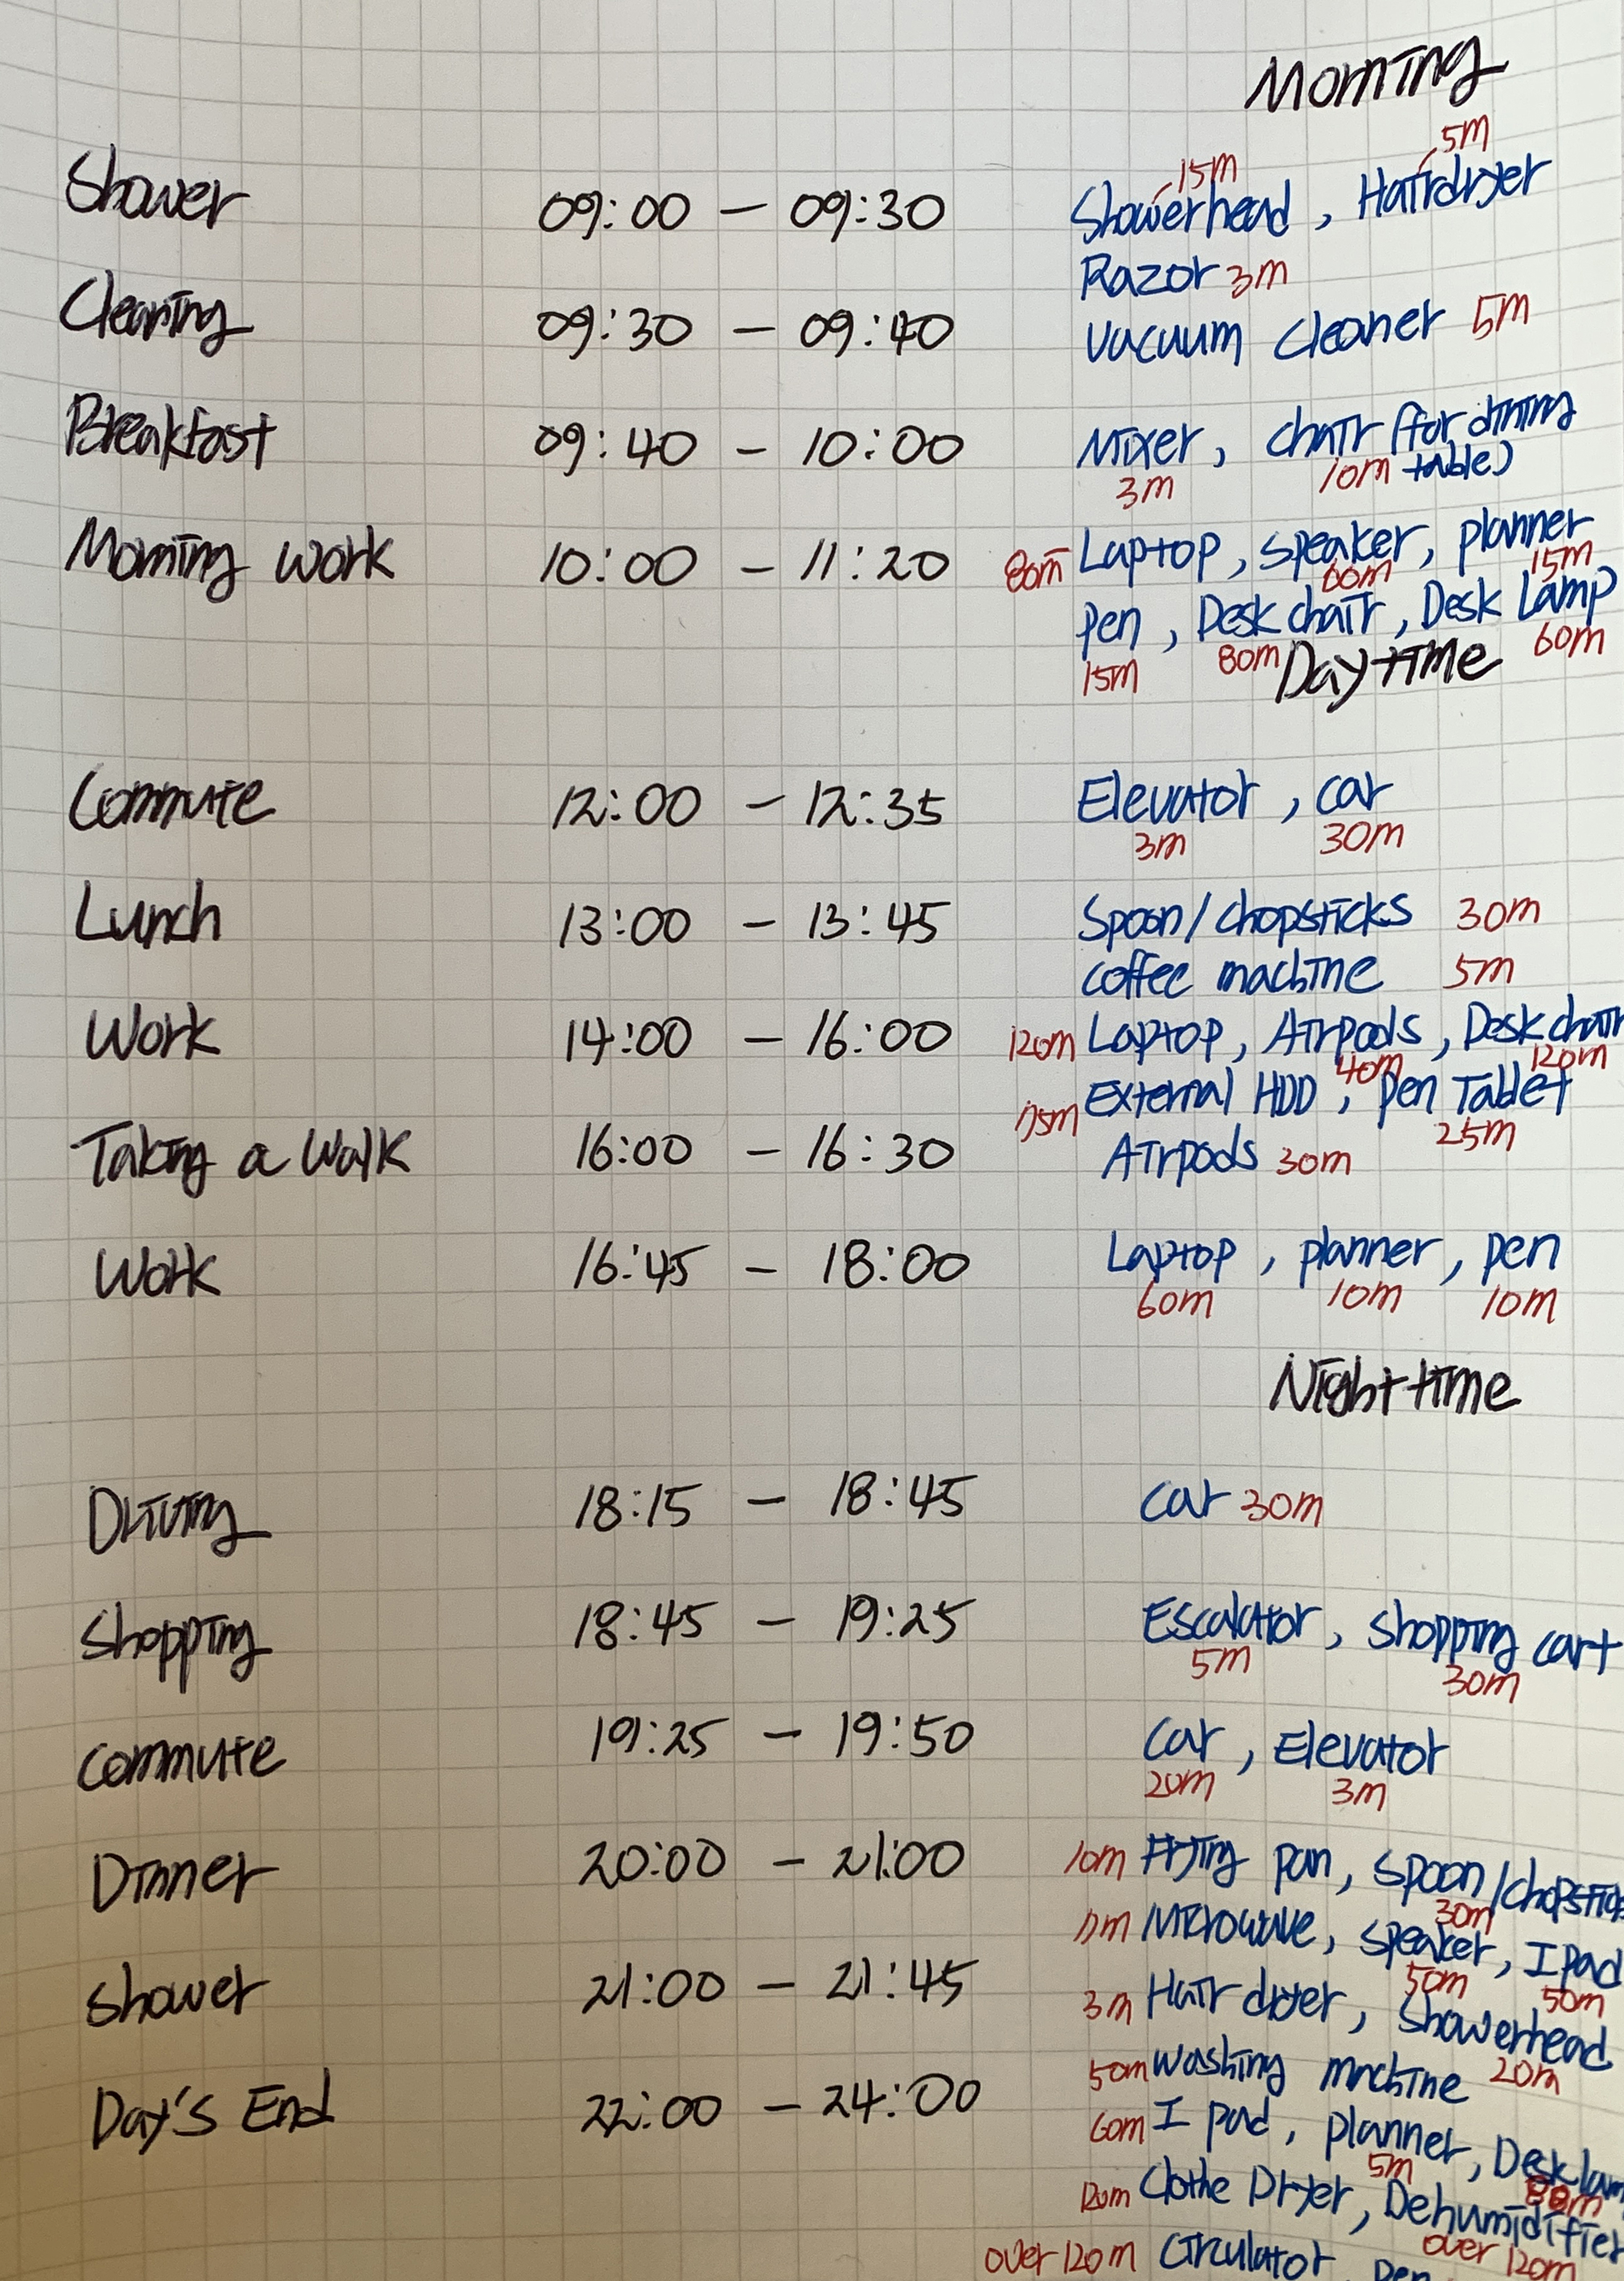 Morning
15m 5m
Shower 09:00 - 09:30 Showerhead, Hairdryer
Razor 3m
Cleaning 09:30 - 09:40 Vacuum cleaner 5m
Breakfast 09:40 - 10:00 Mixer, chair (for dining
3m 10m table)
Morning work 10:00 - 11:20 80m Laptop, speaker, planner
60m 15m
pen, Desk chair, Desk Lamp
15m 80m 60m
Daytime
Commute 12:00 - 12:35 Elevator, car
3m 30m
Lunch 13:00 - 13:45 Spoon/chopsticks 30m
coffee machine 5m
Work 14:00 - 16:00 120m Laptop, Airpods, Desk chair
40m 120m
External HDD, pen Tablet
25m
Taking a walk 16:00 - 16:30 Airpods 30m
Work 16:45 - 18:00 Laptop, planner, pen
60m 10m 10m
Nighttime
Driving 18:15 - 18:45 car 30m
shopping 18:45 - 19:25 Escalator, shopping cart
5m 30m
commute 19:25 - 19:50 car, Elevator
20m 3m
Dinner 20:00 - 21:00 10m Frying pan, spoon/chopsticks
30m
Microwave, speaker, Ipad
50m 50m
shower 21:00 - 21:45 3m Hair dryer, showerhead
20m
50m washing machine
Day's End 22:00 - 24:00 60m I pad, planner, Desk lam
5m
120m Clothe Dryer, Dehumidifier
over 120m
over 120m circulator, pen